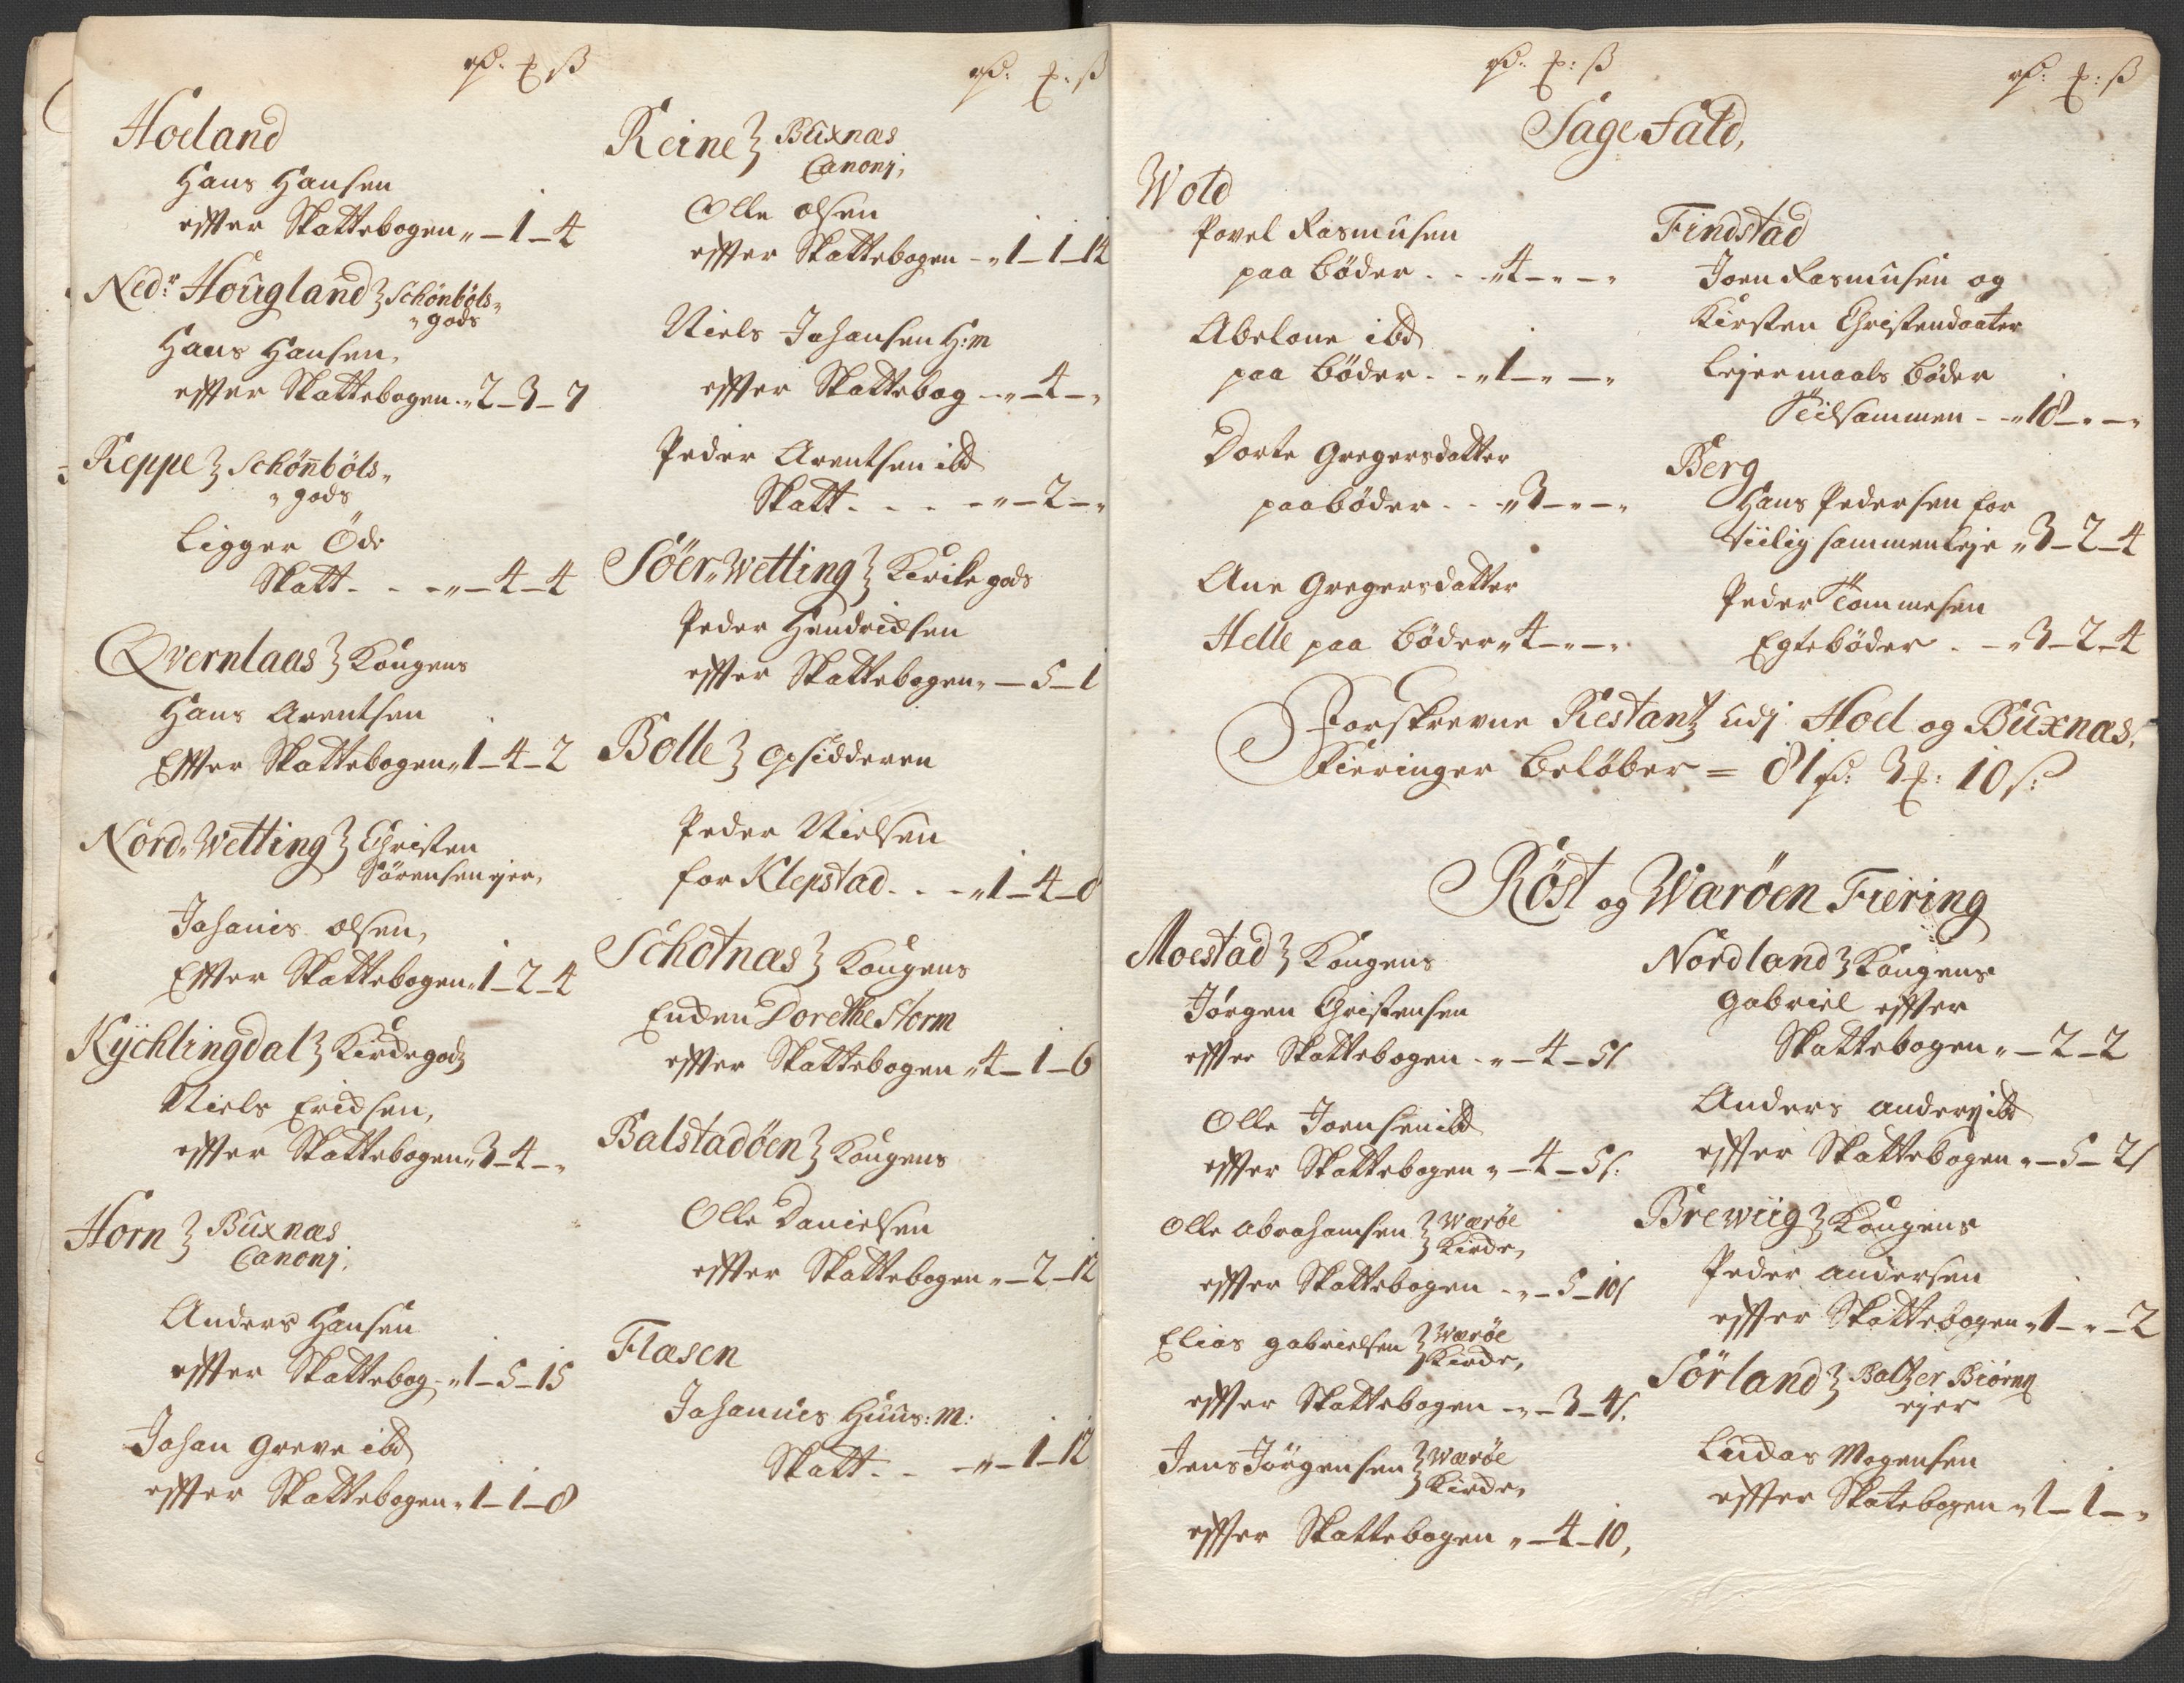 rd. ¤ ß
Hoeland
Hans Hansen
effter Skattebogen „ – 1 – 4
Nedr Hougland } Schönböls„
„gods
Hans Hansen,
effter Skattebogen „ 2 – 3 – 7
Reppe } Schönböls„
„gods
Ligger Öde
Skatt - - - „ – 4 – 4
Qvernlaas } Kongens
Hans Arentsen
Effter Skattebogen „ 1 – 4 – 2
Nord„Wetting } Christen
Sörensen ejer,
Johanis olsen,
Effter Skattebogen „ 1 – 2 – 4
Kÿchlingdal } Kirckegodz
Niels Ericksen,
effter Skattebogen „ 3 – 4 – „
Horn } Buxnæs
Canonj:
Anders Hansen
effter Skattebog - „ 1 – 5 – 15
Johan Greve ibd
effter Skattebogen „ 1 – 1 – 8
rd: ¤: ß
Reine } Buxnæs
Canonj;
Olle olsen
effter Skattebogen - „ 1 – 1 – 12
Niels Johansen H:m
effter Skattebog - „ – 4 – „
Peder Arentsen ibd
Skatt - - - - „ – 2 – „
Söer„Wetting } Kirke gods
Peder Hendricksen
effter Skattebogen „ – 5 – 1
Bolle } opsidderen
Peder Nielsen
for Klepstad - - - „ 1 – 4 – 8
Schotnæs } Kongens
Encken Dorethe Storm
effter Skattebogen „ 4 – 1 – 6
Balstadöen } Kongens
Olle Danielsen
effter Skattebogen „ – 2 – 12
Flæsen
Johannes Huus: m:
Skatt - - - „ – 1 – 12
rd: ¤: ß
Sage Fald,
Wold
Povel Rasmusen
paa böder - - „ 4 – „ – „
Abelone ibd
paa böder - - „ 1 – „ – „
Dorte Gregersdatter
paa böder - - „ 3 – „ – „
Ane Gregersdatter
Helle paa böder „ 4 – „ – „
rd: ¤: ß
Findstad
Joen Rasmusen og
Kirsten Christendaater
Lejermaals böder
Tilsammen - „ 18 – „ – „
Berg
Hans Pedersen for
tiilig sammenleje „ 3 – 2 – 4
Peder Tommesen
Egtebøder - - „ 3 – 2 – 4
Forskrevne Restantz udj Hoel og Buxnæs,
Fieringer beløber = 81 rd: 3 ¤: 10 s:
Röst og Waröen Fiering
Moestad } Kongens
Jørgen Christensen
effter Skattebogen - „ – 4 – 5 s
Olle Joensen ibd
effter Skattebogen „ – 4 – 5 s:
Olle Abrahamsen } Waröe
Kircke,
effter Skattebogen - „ – 5 – 10 s
Elias gabrielsen } Waröe
Kircke,
effter Skattebogen - „ – 3 – 4 s:
Jens Jörgensen } Waröe
Kircke,
effter Skattebogen „ – 4 – 10,
Nordland } Kongens
gabriel effter
Skattebogen „ – 2 – 2
Anders anders: ibd
effter Skattebogen „ – 5 – 2 s
Brewiig } Kongens
Peder andersen
effter Skattebogen „ 1 – „ – 2
Sörland } Baltzer Biörn
ejer
Lucas Mogensen
effter Skatebogen „ 1 – 1 – „